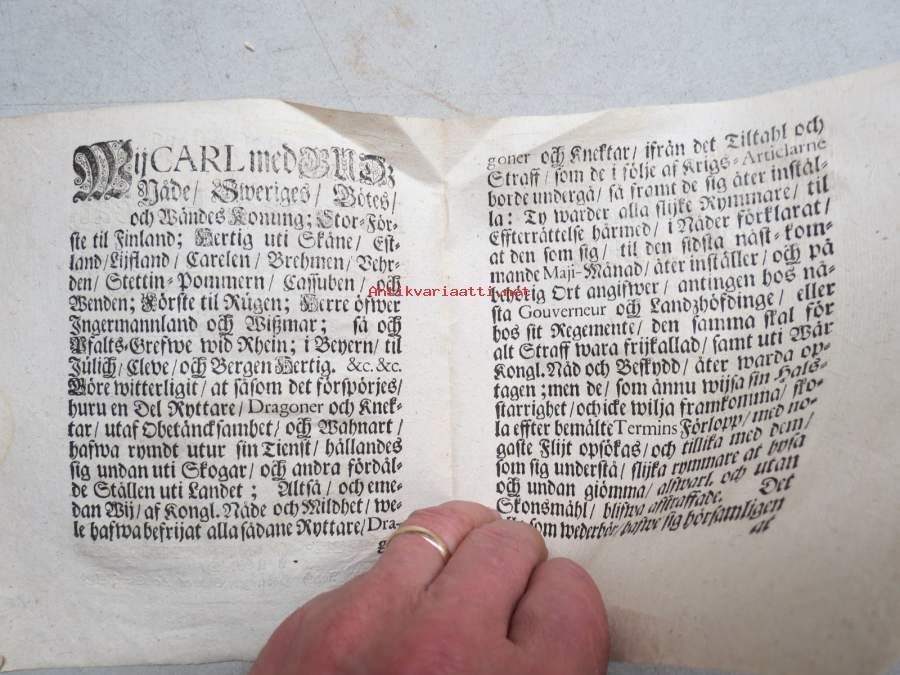 Wij CARL med GUDz
Nåde/ Sweriges/ Götes/
och Wändes Konung; Stor-För-
ste til Finland; Hertig uti Skåne/ Est-
land/Lijfland/ Carelen/ Brehmen/ Vehr-
den/ Stettin-Pommern/ Cassuben/ och
Wenden; Förste til Rügen; Herre öfwer
Ingermannland och Wißmar; så och
Pfaltz-Grefwe wid Rhein; i Beyern/ til
Jülich/ Cleve/ och Bergen Hertig. &c. &c.
Göre witterligit/ at såsom det förspörjes/
huru en Del Ryttare/ Dragoner och Knek-
tar/ utaf Obetäncksamhet/ och Wahnart/
hafwa rymdt utur sin Tienst/ hållandes
sig undan uti Skogar/ och andra fördäl-
de Ställen uti Landet; Altså/ och eme-
dan Wij/ af Kongl. Nåde och Mildhet/ we-
le hafwa befrijat alla sådane Ryttare/ Dra-
goner och Knektar/ ifrån det Tiltahl och
Straff/ som de i följe af Krigs-Articlarne
borde undergå/ så framt de sig åter instäl-
la: Ty warder alla slijke Rymmare/ til
Effterrättelse härmed/ i Nåder förklarat/
at den som sig/ til den sidsta näst-kom-
mande Maji-Månad/ åter inställer/ och på
behörig Ort angifwer/ antingen hos nä-
sta Gouverneur och Landzhöfdinge/ eller
hos sit Regemente/ den samma skal för
alt Straff wara frijkallad/ samt uti Wår
Kongl. Nåd och Beskydd/ åter warda op-
tagen; men de/ som ännu wijsa sin Hals-
starrighet/ och icke wilja framkomma/ sko-
la effter bemälte Termins Förlopp/ med no-
gaste Flijt opsökas/ och tillika med dem/
som sig understå/ slijka rymmare at hysa
och undan giömma/ alfwarl. och utan
Skonsmähl/ blifwa afstraffade. Det
som wederbör/ hafwe sig hörsamligen
at
Antikvariaatti.net